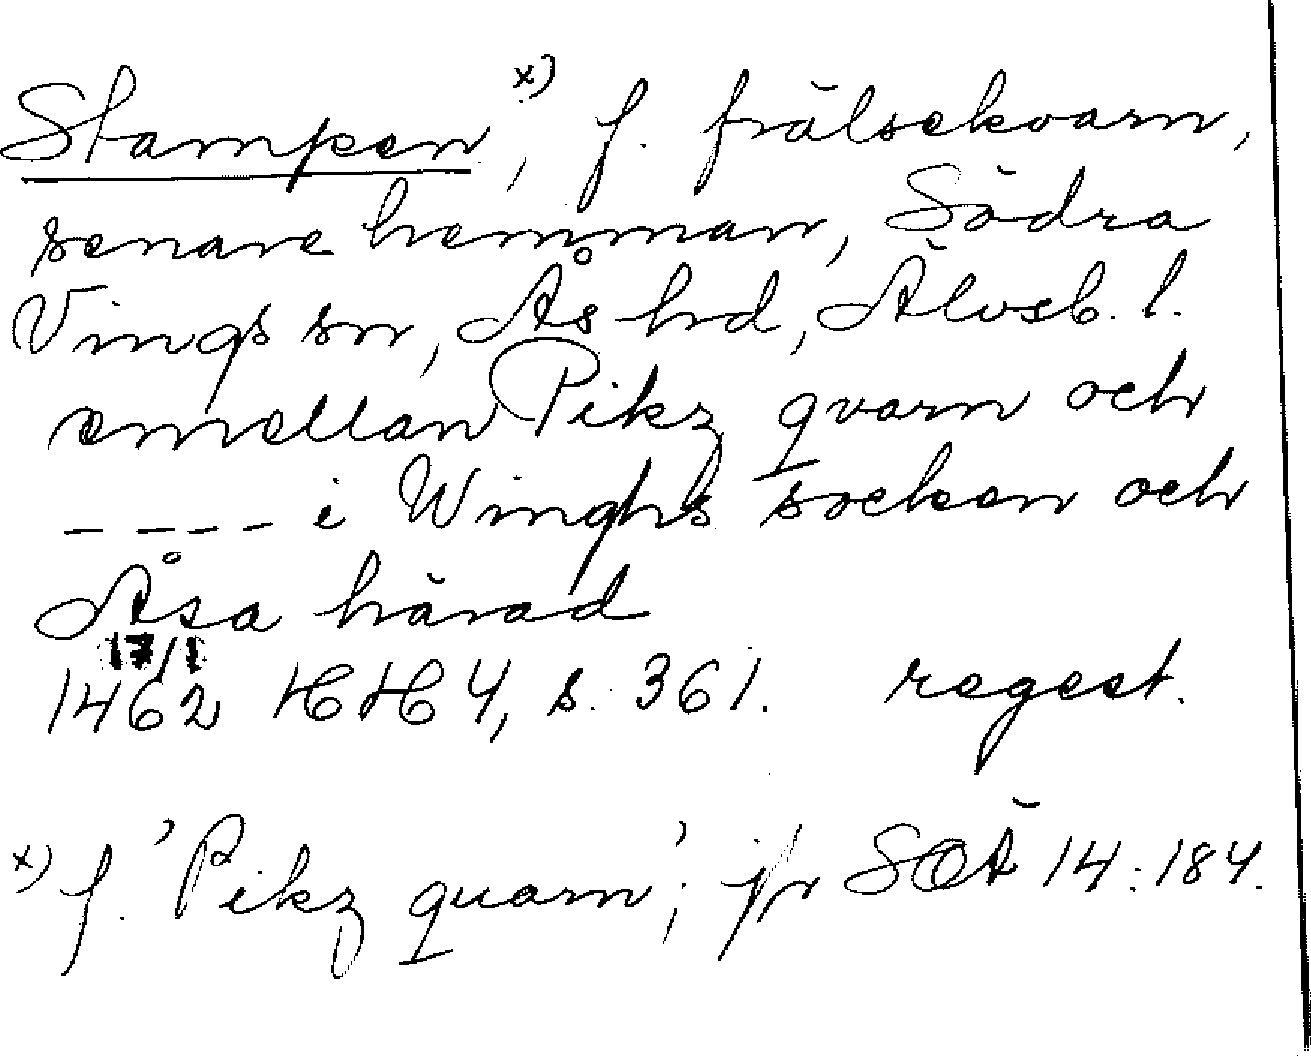 Stampen x), f. frälsekvarn,
senare hemman, Södra
Vings sn, Ås hd, Älvsb. l.
emellan Pikz qvarn och
---- i Winghs socken och
Åsa härad
17/1
1462 HH 4, s. 361. regest.
x) f. 'Pikz quarn'; jfr SOÄ 14:184.